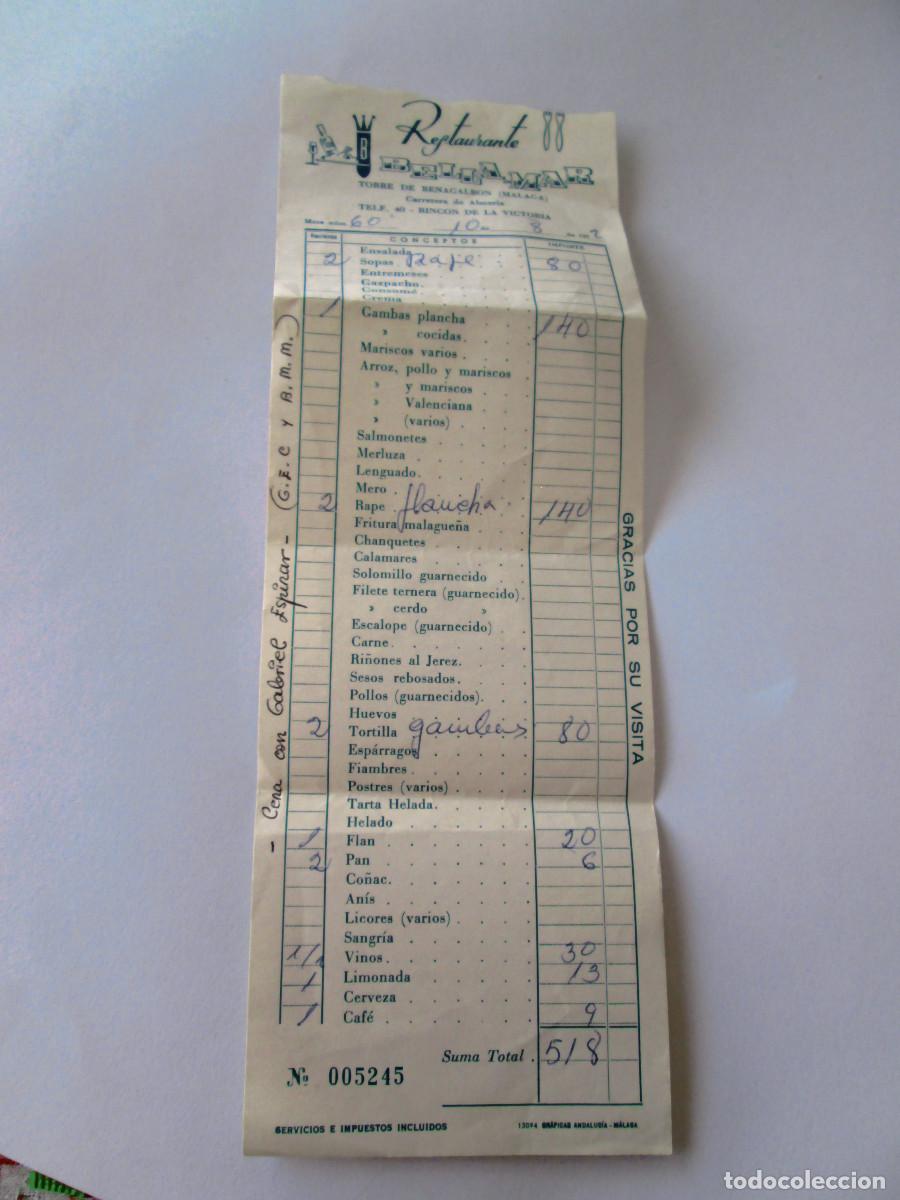 Restaurante
B
BELLAMAR
TORRE DE BENAGALBON (MALAGA)
Carretera de Almería
TELF. 40 - RINCON DE LA VICTORIA
Mesa núm. 60 10 - 8 de 1972
Raciones CONCEPTOS IMPORTE
Ensalada
2 Sopas Rape 80
Entremeses
Gazpacho
Consumé
Crema
1 Gambas plancha 140
» cocidas
Mariscos varios
Arroz, pollo y mariscos
» y mariscos
» Valenciana
» (varios)
Salmonetes
Merluza
Lenguado
Mero
2 Rape plancha 140
Fritura malagueña
Chanquetes
Calamares
Solomillo guarnecido
Filete ternera (guarnecido)
» cerdo »
Escalope (guarnecido)
Carne
Riñones al Jerez
Sesos rebosados
Pollos (guarnecidos)
Huevos
2 Tortilla gambas 80
Espárragos
Fiambres
Postres (varios)
Tarta Helada
Helado
1 Flan 20
2 Pan 6
Coñac
Anís
Licores (varios)
Sangría
1/1 Vinos 30
1 Limonada 13
Cerveza
1 Café 9
Suma Total 518
Nº 005245
SERVICIOS E IMPUESTOS INCLUIDOS 13094 GRÁFICAS ANDALUCÍA - MÁLAGA
GRACIAS POR SU VISITA
- Cena con Gabriel Espinar - (G.E.C y A.M.M.)
todocoleccion